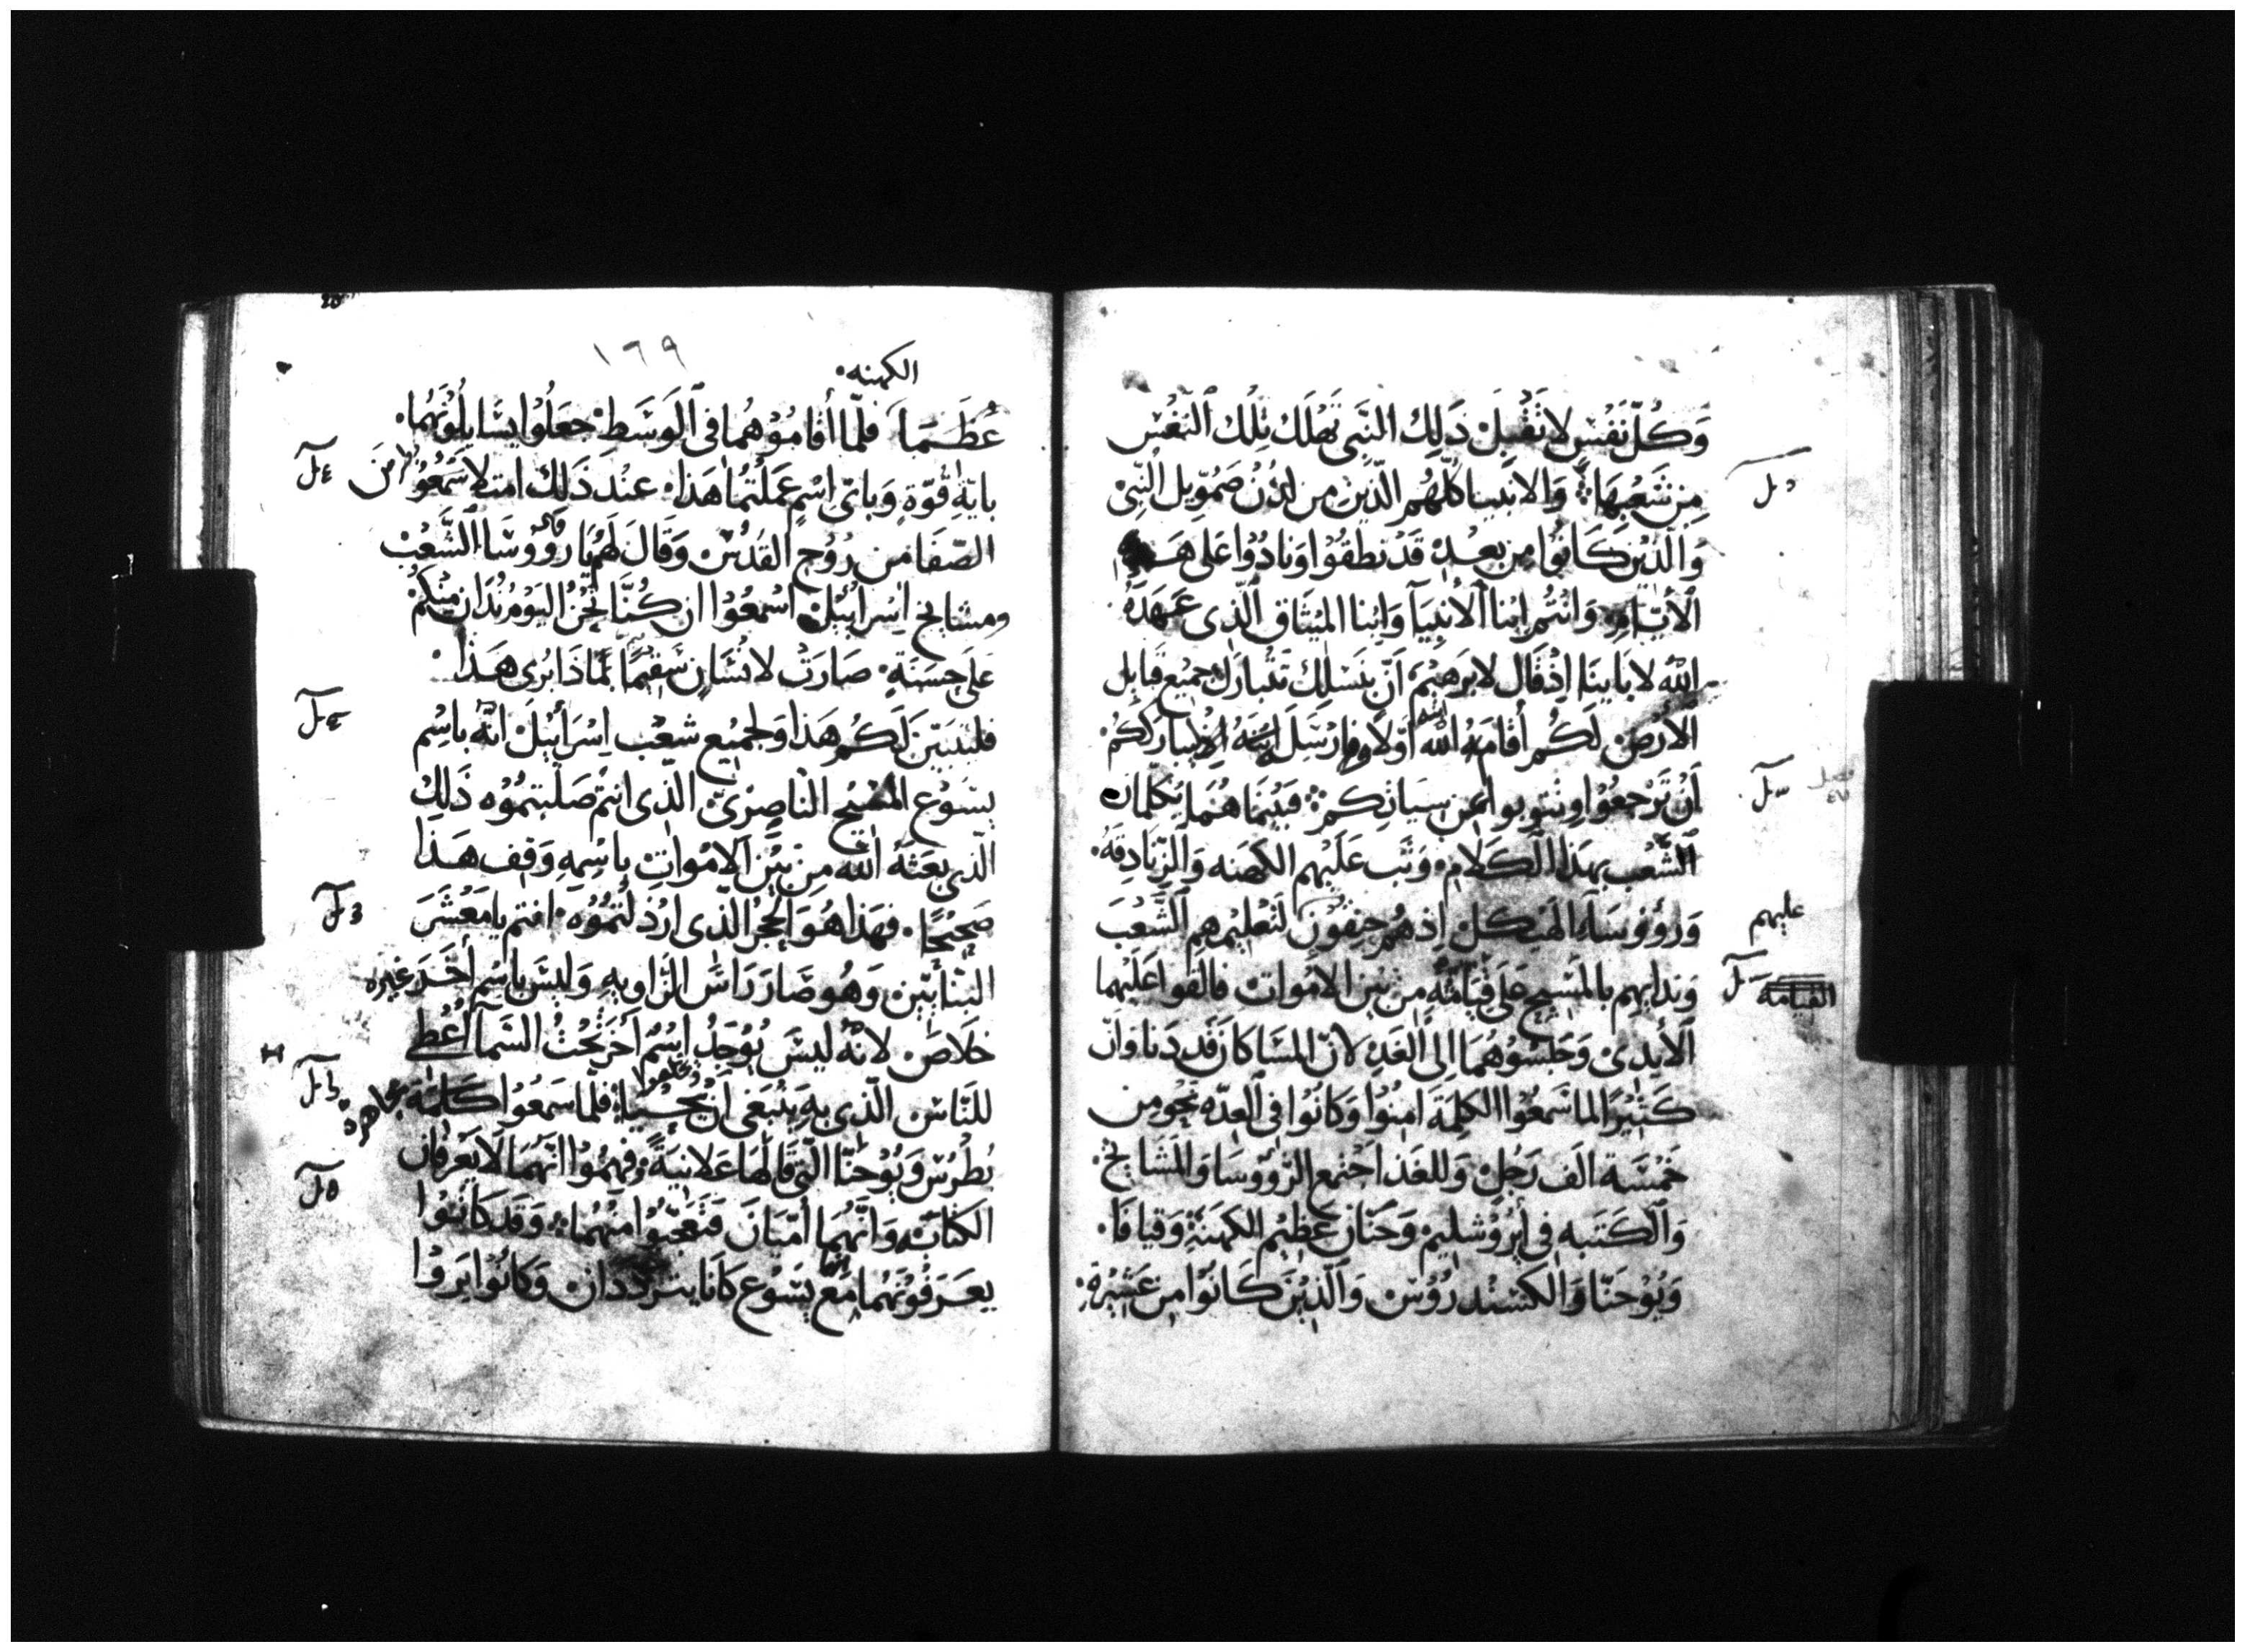 وَكُلّ نَفْسٍ لا تَقْبلَ ذَلِكَ النَّبى تَهْلَك تِلْك النّفْس
مِن شَعْبهَا وَالانبيا كلّهُم الّذين من لدُن صَمُوِيل النّبىْ
وَالّذيْن كَانوُا من بعْدِهْ قَدْ نطقوُا وَنادُوا عَلى
الأيّام وَانتُم ابْنا الأنْبيَآ وَابْنا الميْثاق الّذى عَهَدهُ
اللّه لابَاينَا اذْ قال لابرَهيْمَ أنّ بنَسْلِك تتْبارَك جميْع قبايل
الارْض لَكُم أقامَهُ اللّه اوّلا وارْسَل ابنه ليباركُم
أنْ تَرْجعوُا وتتوبوا عن سياتكم فبيْنمَا هُمَا يكلّمان
الشّعْب بهَذا الكَلامِ وَثَب عَليهم الكهنه وَالزّنادِقة
وَرؤوسَآ الهَيْكل إذ هُم حنقون لتعْليمهِم الشّعْبَ
وندايهم بالمسيح على قيامته من بين الاموات فالقوا عَليْهما
الأيدىْ وَحَبسُوْهُمَا الى الغَدِ لانّ المسَا كان قد دَنا وَانّ
كَثيْرًا لما سَمعوُا الكلِمَةَ امنوُا وَكانوُا فى العِدّه نحْو من
خمْسَة الف رَجُلْ وَللغَد اجْتمع الرّؤوسَا وَالمشَايخْ
وَالكَتَبه فى أيْروُشليمْ وَحَنّان عظيْم الكهنَةْ وَقيافا
وَيُوْحَنّا وَالكسْندروُسْ وَالّذيْن كانوُا من عَشيْرة
عليهم
القيامة
١٦٩
الكهنه
عُظَمَا فلمّا أقامُوْهُما فى الوَسَطِ جعَلوُا يسَايلوْنهُما
بايّة قُوّةٍ وَباىّ اسْمٍ عمَلتُما هَذا عنْد ذَلِك امتلا شَمْعُوْن
الصّفا من رُوُح القدُسْ وَقالَ لهُمْ يا رؤوسَا الشّعْب
ومشايخ اسْراييْل اسْمعُوْا ان كُنّا نحْنُ اليوْم نُدَان منكم
عَلى حسَنَةٍ صَارَتْ لانسَان سَقيْم بمَاذا برى هَذا
فليتبيّن لكُم هَذا وَلجميْع شعْب اسْرَائيْل انّه باسْم
يسُوْع المسيْح النّاصرىّ الّذى انتمْ صَلبتموُه ذَلِك
الّذى بعَثهُ اللّه من بيْن الامْواتِ باسْمهِ وَقف هَذا
صَحيْحًا فهَذا هُوَ الحجرُ الّذى ارْذلتموُه انتم يا مَعْشَرَ
البنّائيْن وَهُو صَار رَاسْ الزّاويهِ وَليْسَ باسْم أخَر غيره
خلاص لانّه ليْسَ يُوْجَدُ اسْم اخر تحْتُ السّمآ أُعْطى
للنّاسْ الّذى به ينْبغى أنْ يحْيَا فلمّا سَمعُوْا كَلمة
بُطْرُسْ وَيُوْحَنّا الّتى قالهَا عَلانيَةً وفهمُوْا انّهُمَا لايَعْرفان
الكتابْ وَانّهُمَا أمّيّان فتعَجّبوُا منهُما وَقَد كانوُا
يعرَفوُنهُما مَع يسُوْع كَانا يتردّدان وَكانُوْا يَروْا